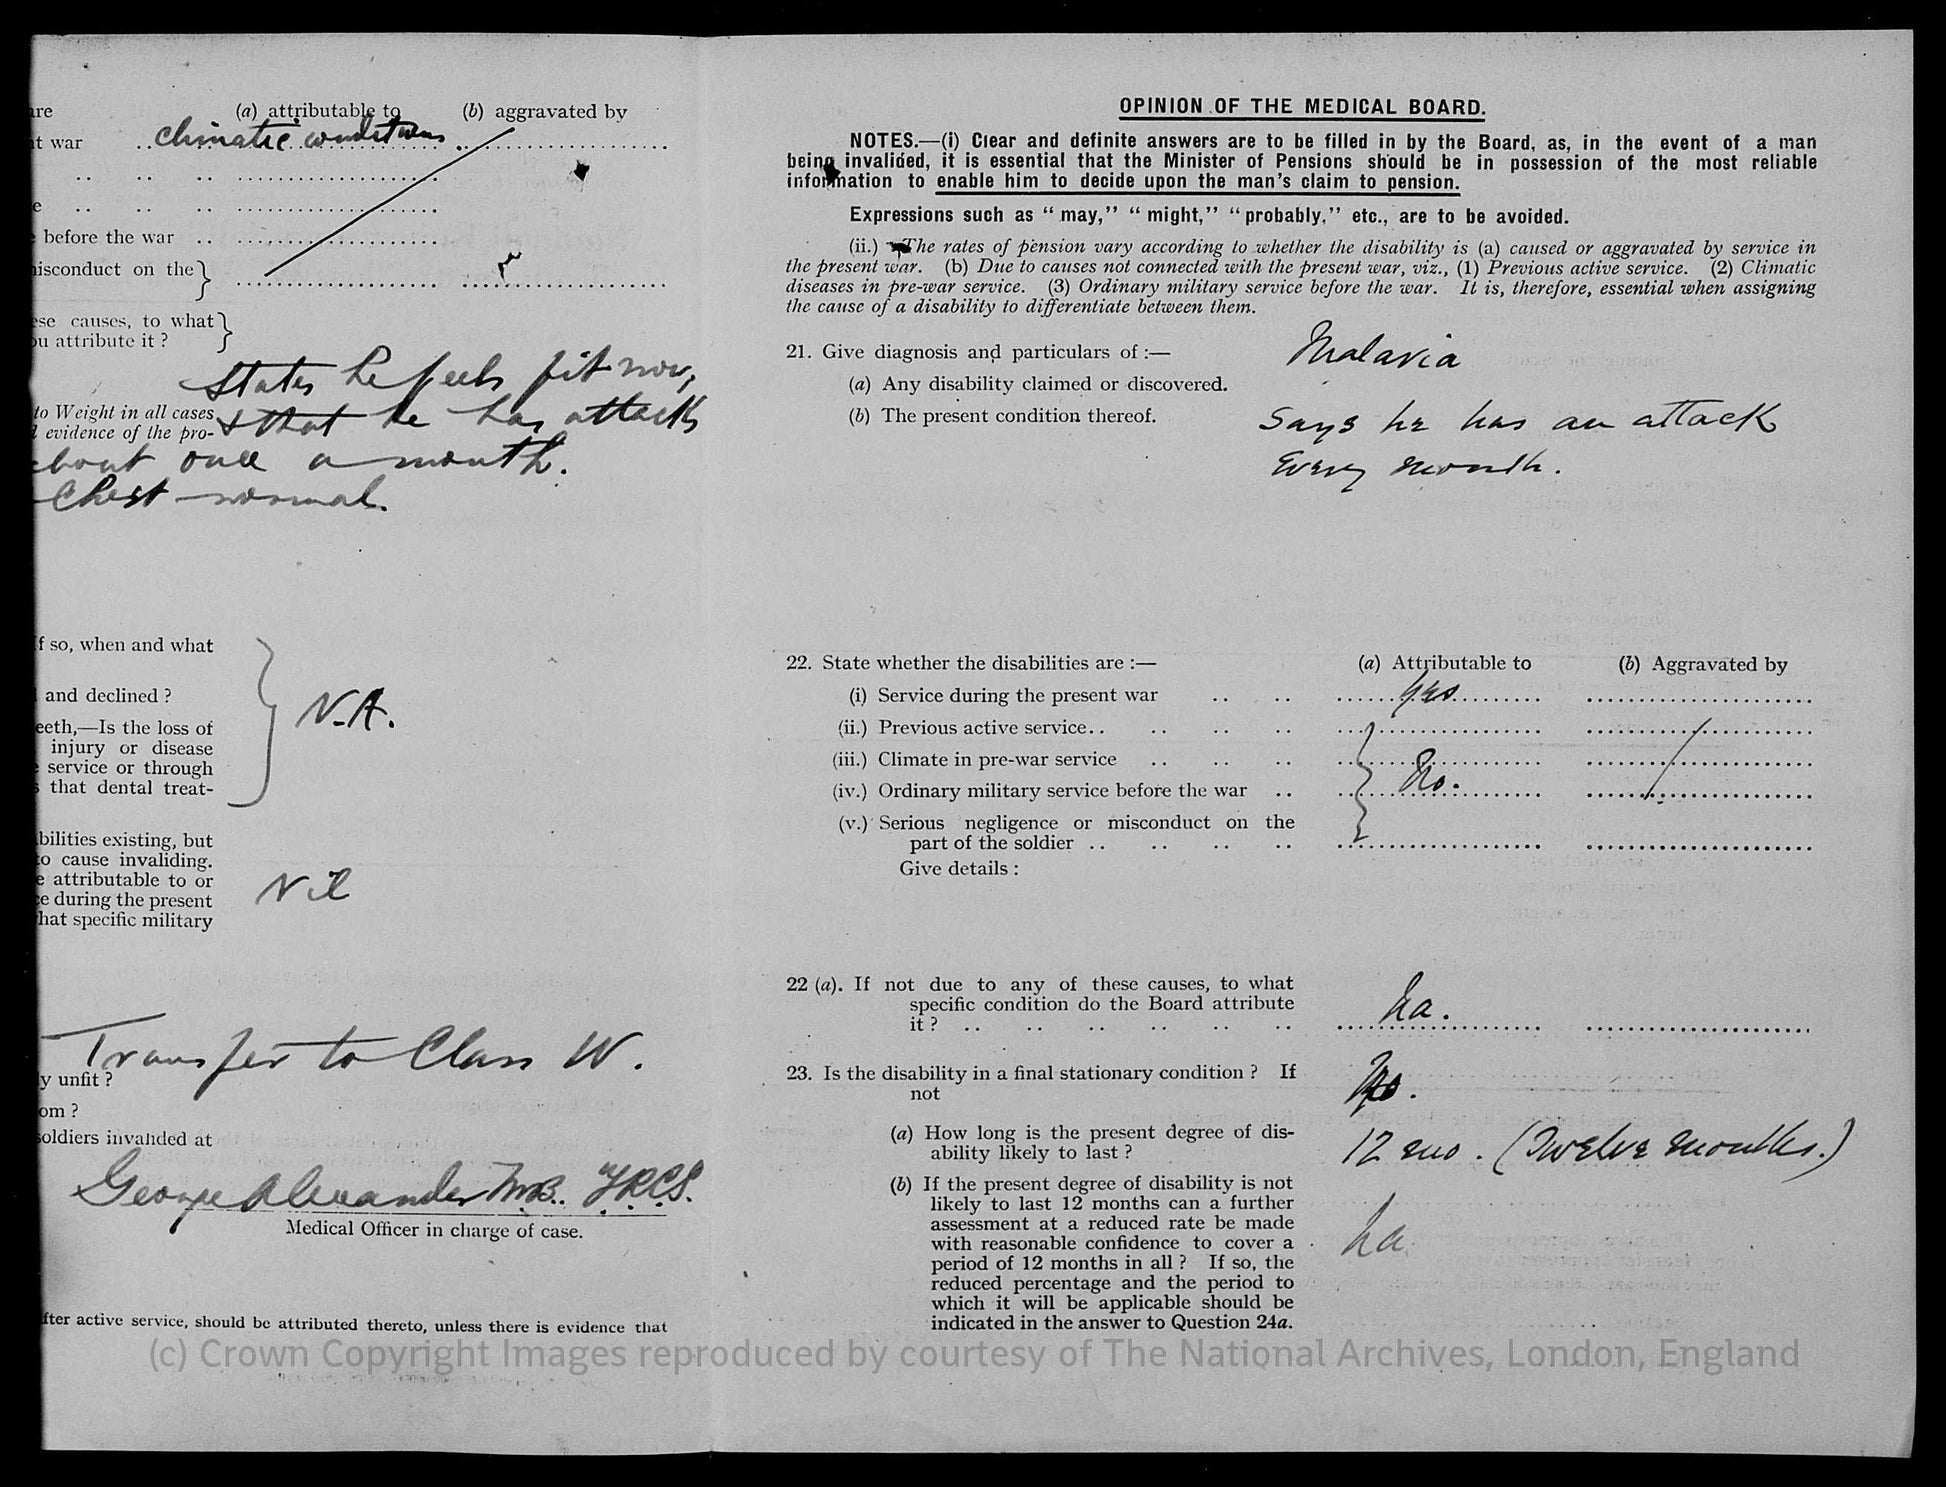 are (a) attributable to (b) aggravated by
t war .. climatic conditions
.. .. ..
e .. .. ..
before the war ..
isconduct on the }
ese causes, to what }
ou attribute it ?
States he feels fit now,
to Weight in all cases
& that he has attacks
evidence of the pro-
about once a month.
Chest normal.
If so, when and what
and declined ?
N.A.
eeth,—Is the loss of
injury or disease
service or through
that dental treat-
bilities existing, but
to cause invaliding.
e attributable to or
Nil
ce during the present
hat specific military
Transfer to Class W.
y unfit ?
om ?
soldiers invalided at
George Alexander M.B. F.R.C.S.
Medical Officer in charge of case.
fter active service, should be attributed thereto, unless there is evidence that
OPINION OF THE MEDICAL BOARD.
NOTES.—(i) Clear and definite answers are to be filled in by the Board, as, in the event of a man
being invalided, it is essential that the Minister of Pensions should be in possession of the most reliable
information to enable him to decide upon the man's claim to pension.
Expressions such as "may," "might," "probably," etc., are to be avoided.
(ii.) The rates of pension vary according to whether the disability is (a) caused or aggravated by service in
the present war. (b) Due to causes not connected with the present war, viz., (1) Previous active service. (2) Climatic
diseases in pre-war service. (3) Ordinary military service before the war. It is, therefore, essential when assigning
the cause of a disability to differentiate between them.
21. Give diagnosis and particulars of :— Malaria
(a) Any disability claimed or discovered.
(b) The present condition thereof. Says he has an attack
every month.
22. State whether the disabilities are :— (a) Attributable to (b) Aggravated by
(i) Service during the present war .. .. Yes
(ii.) Previous active service.. .. .. ..
(iii.) Climate in pre-war service .. .. ..
(iv.) Ordinary military service before the war .. No.
(v.) Serious negligence or misconduct on the
part of the soldier .. .. .. ..
Give details :
22 (a). If not due to any of these causes, to what
specific condition do the Board attribute
it ? .. .. .. .. .. .. na.
23. Is the disability in a final stationary condition ? If No.
not
(a) How long is the present degree of dis-
ability likely to last ? 12 mo. (Twelve months.)
(b) If the present degree of disability is not
likely to last 12 months can a further
assessment at a reduced rate be made
with reasonable confidence to cover a na
period of 12 months in all ? If so, the
reduced percentage and the period to
which it will be applicable should be
indicated in the answer to Question 24a.
(c) Crown Copyright Images reproduced by courtesy of The National Archives, London, England